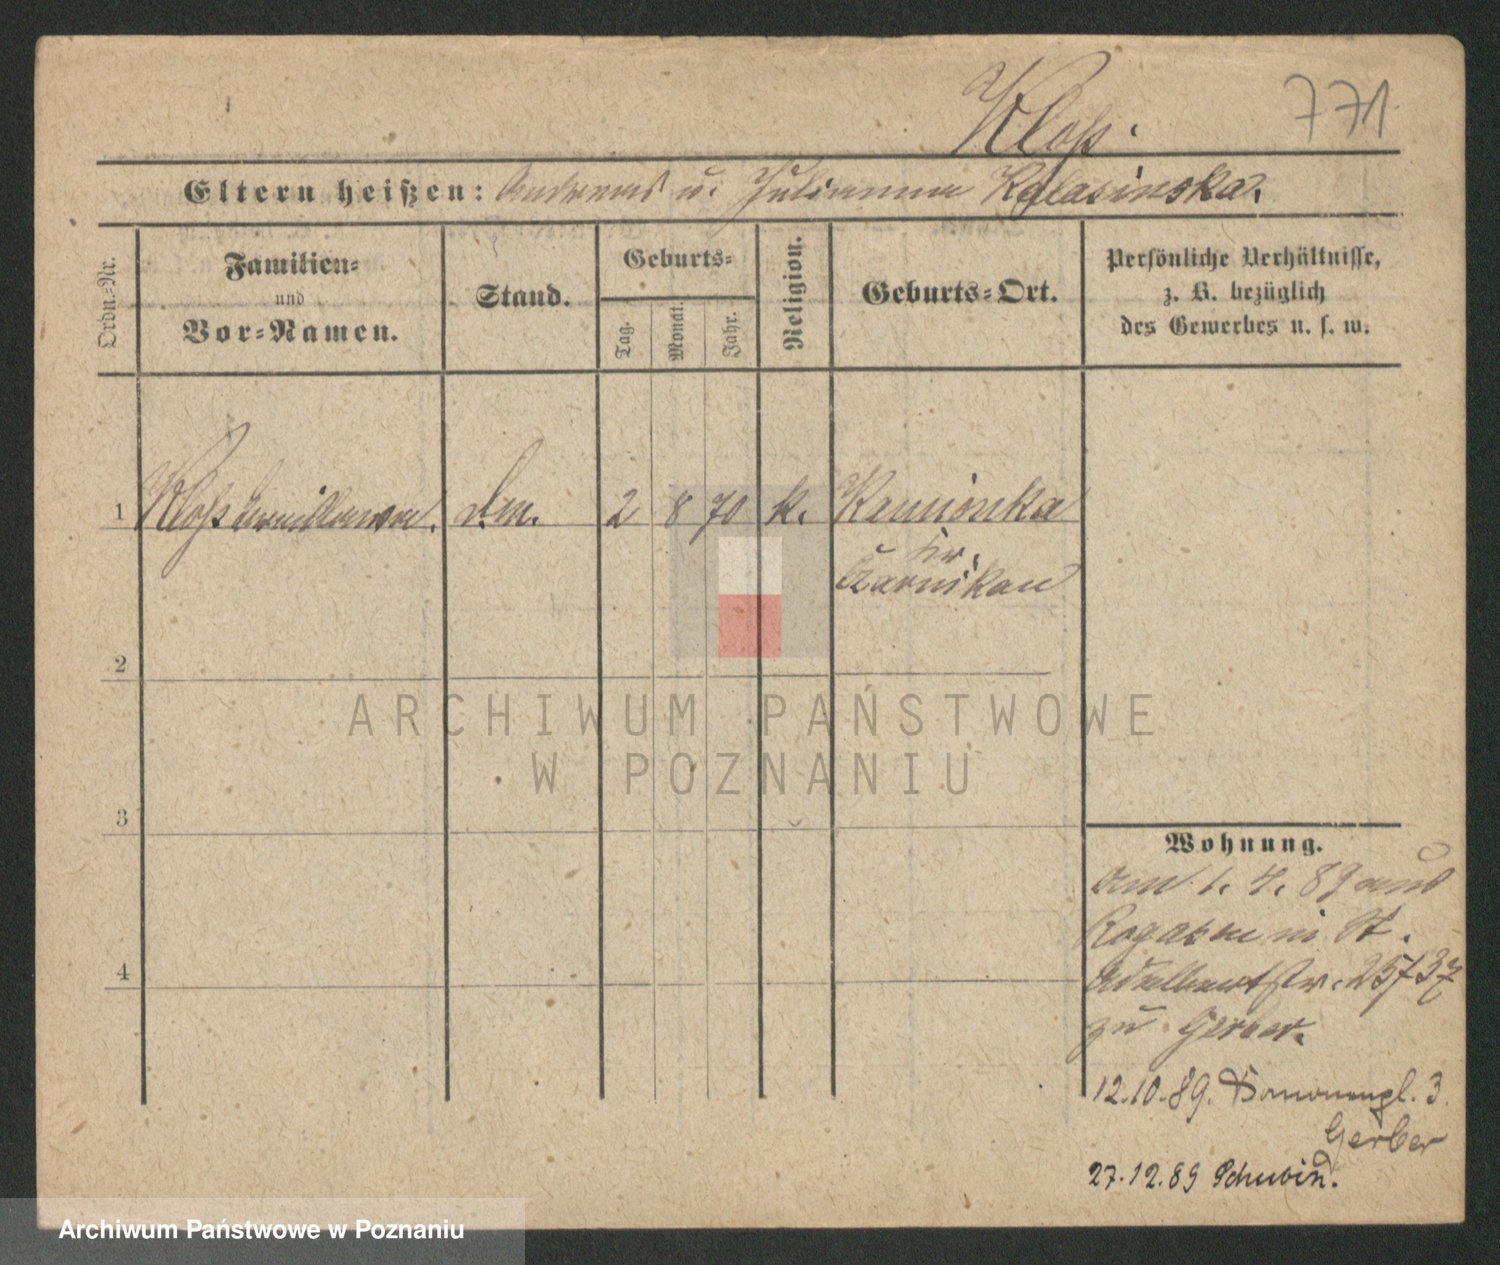 771
Kloß.
Eltern heißen: Andreas u. Julianna Kolasinska.
Ordn.-Nr.
Familien-
und
Vor-Namen.
Stand.
Geburts-
Tag.
Monat.
Jahr.
Religion.
Geburts-Ort.
Persönliche Verhältnisse,
z. B. bezüglich
des Gewerbes u. s. w.
1 Kloß D.m. 2 8 70 k. Kamionka
Kr.
Czarnikau
2
3
4
Wohnung.
am 1. 4. 89 aus
Rogasen in St.
Adalbertstr. 25/37
zu Gerber.
12.10.89. 3
Gerber
27.12.89 Schubin.
ARCHIWUM PAŃSTWOWE
W POZNANIU
Archiwum Państwowe w Poznaniu